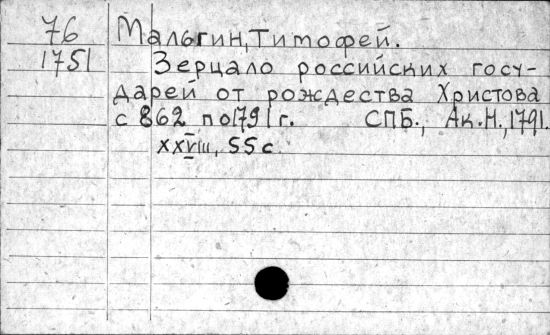 76 Мальгин, Тимофей.
1751 Зерцало российских госу-
дарей от рождества Христова
с 862 по 1791 г. СПБ., Ак.Н., 1791.
XXVIII, 55 с.